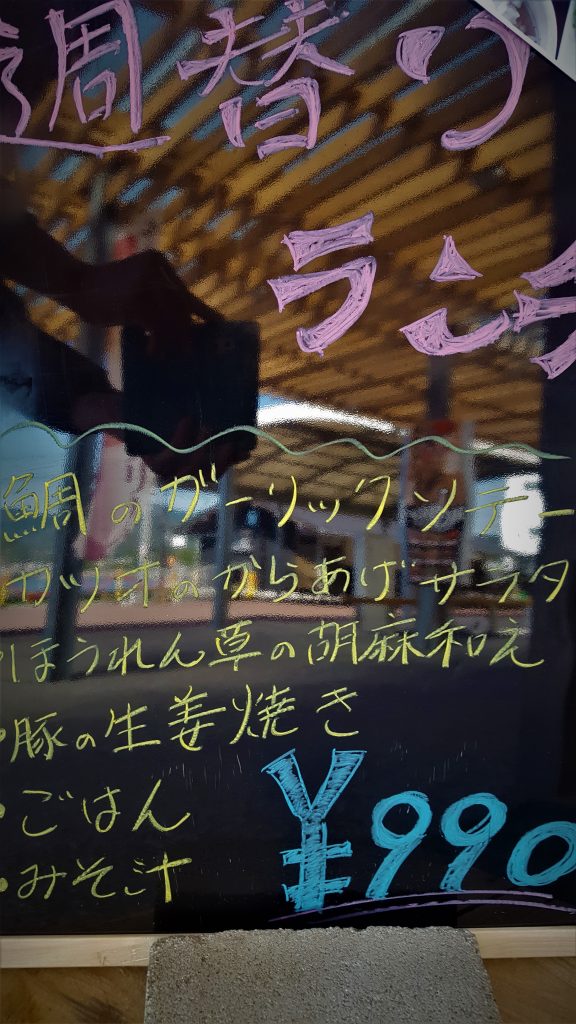 週替り
ラン
鯛のガーリックソテー
ガツオのからあげサラダ
・ほうれん草の胡麻和え
・豚の生姜焼き
・ごはん
・みそ汁
¥990